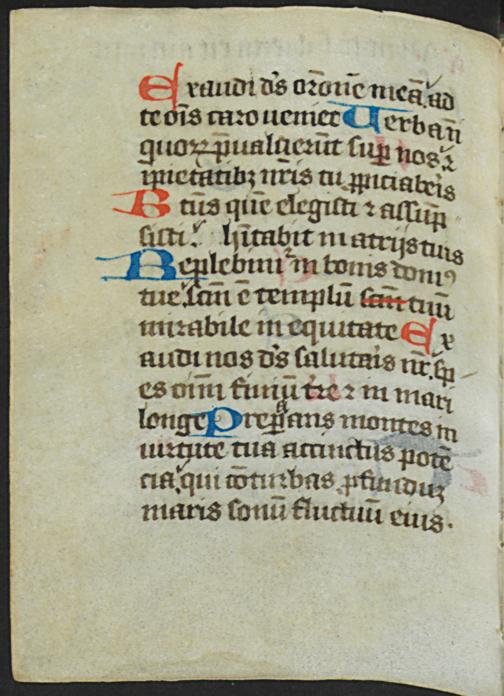 Exaudi ds orōnē meā, ad
te oīs caro veniet Uerba in
quoꝝ p̄ualuerūt suꝑ nos, ⁊
īpietatibꝫ nr̄is tu ꝓpiciab̄is
Btūs quē elegisti ⁊ assūp
sisti, hītabit in atrijs tuis
Replebimꝰ in bonis domꝰ
tue, scm̄ ē templū sanctuū
mirabile in equitate Ex
audi nos ds salutaīs nr̄, sp
es oīm finiū tr̄e ⁊ in mari
longe Preparans montes in
virtute tua accinctus potē
cia, qui cōturbas ꝓfunduꝫ
maris sonū fluctuū eius.